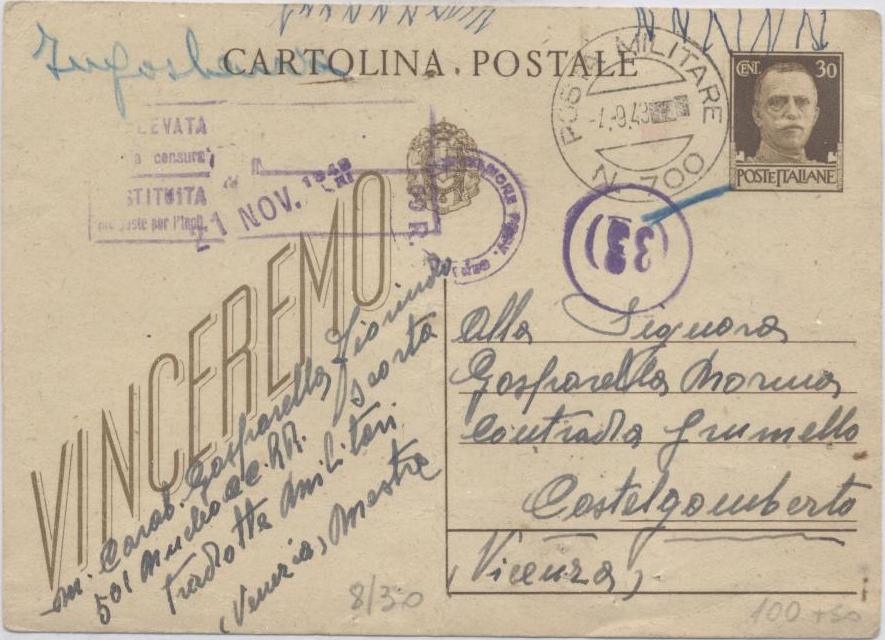 CARTOLINA POSTALE
POSTA MILITARE
-7.-9.43
N. 700
CENT. 30
POSTE ITALIANE
LEVATA
censura
STITUITA
poste per l'In
21 NOV. 1943
33
VINCEREMO
m. Carab. Gasparella Fiorindo
501 Nucleo CC.RR. Scorta
Tradotte Militari
(Venezia) Mestre
Alla Signora
Gasparella Norma
Contrada Grumello
Castelgomberto
(Vicenza)
8/30
100 +50